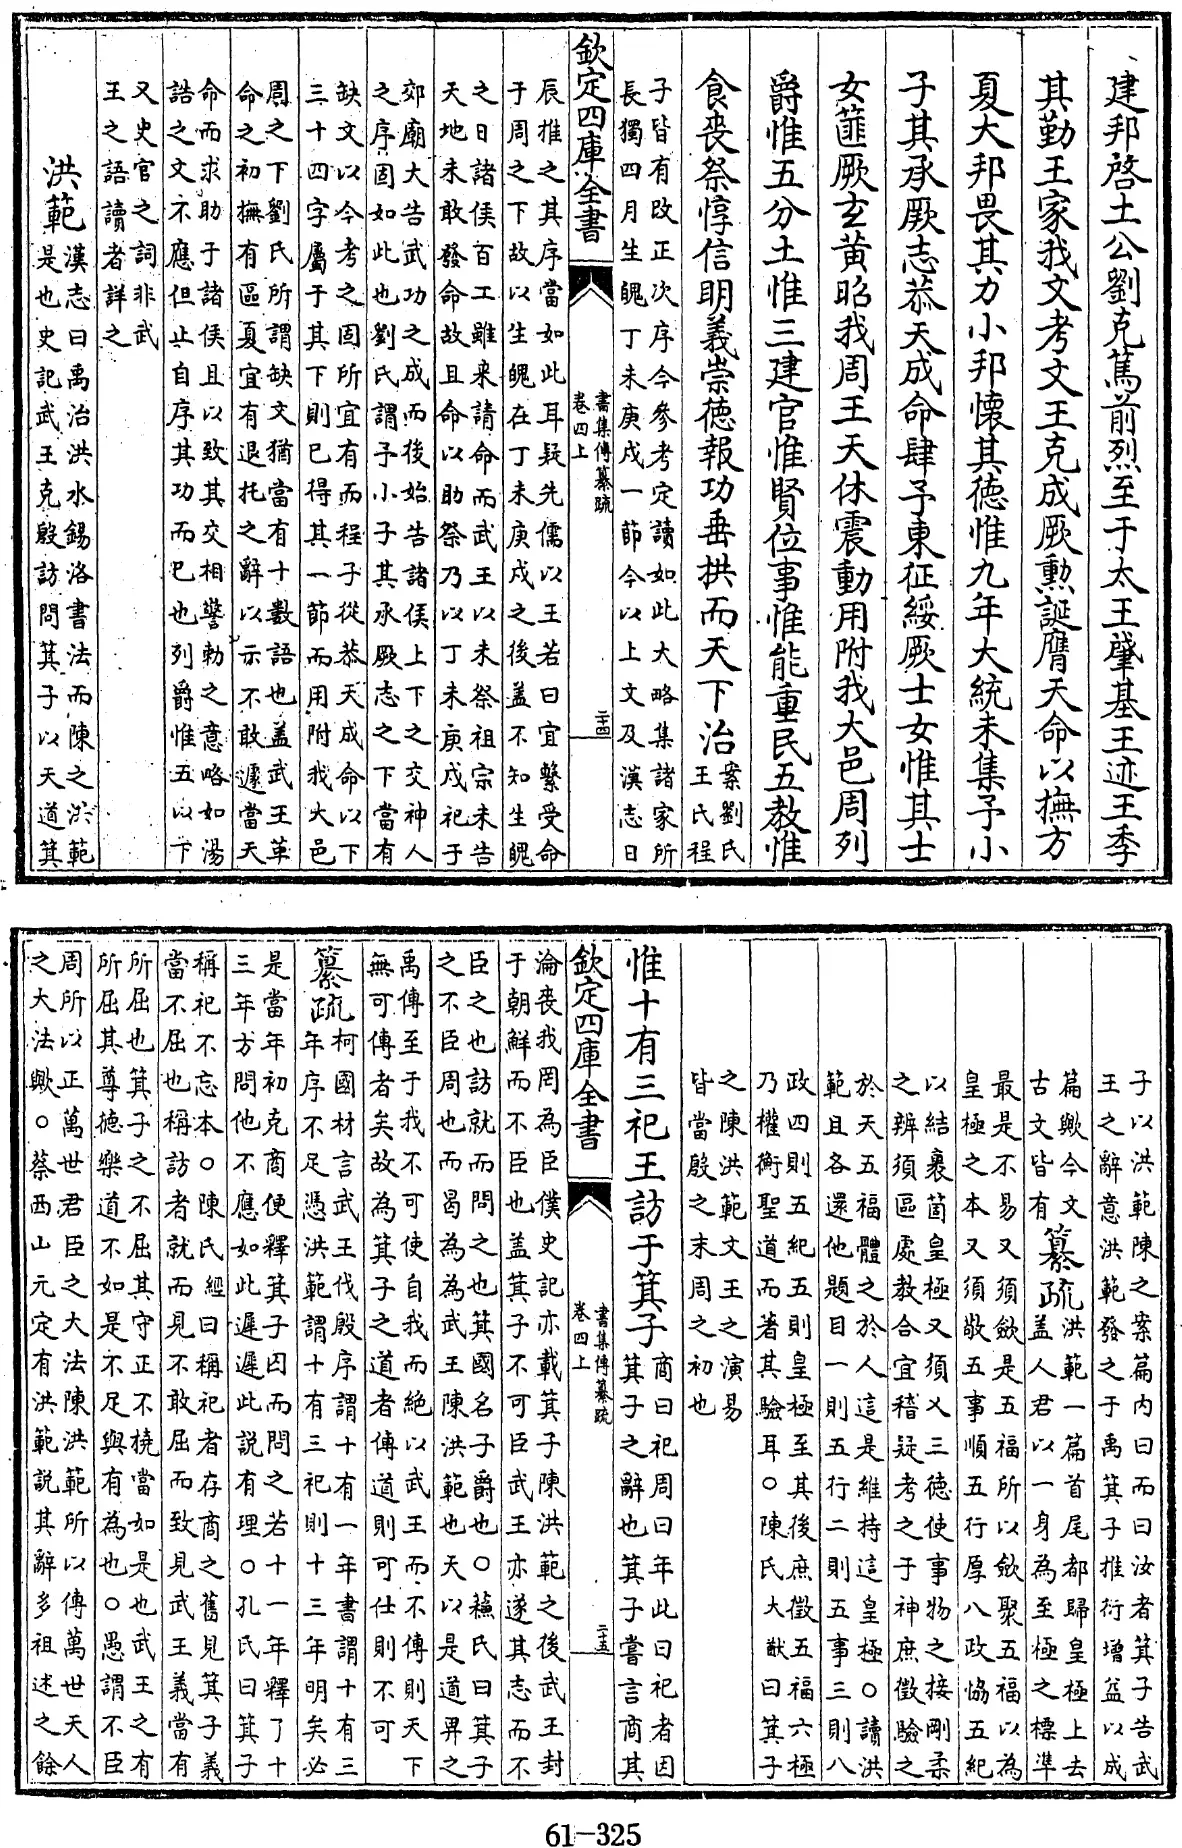 建邦啓土公劉克篤前烈至于太王肇基王迹王季
其勤王家我文考文王克成厥勲誕膺天命以撫方
夏大邦畏其力小邦懐其徳惟九年大統未集予小
子其承厥志恭天成命肆予東征綏厥士女惟其士
女篚厥玄黄昭我周王天休震動用附我大邑周列
爵惟五分土惟三建官惟賢位事惟能重民五教惟
食喪祭惇信明義崇徳報功垂拱而天下治
案劉氏
王氏程
子皆有改正次序今參考定讀如此大略集諸家所
長獨四月生魄丁未庚戍一節今以上文及漢志日
欽定四庫全書
書集傳纂疏
卷四上
二十四
辰推之其序當如此耳疑先儒以王若曰宜繫受命
于周之下故以生魄在丁未庚戍之後盖不知生魄
之日諸侯百工雖来請命而武王以未祭祖宗未告
天地未敢發命故且命以助祭乃以丁未庚戍祀于
郊廟大告武功之成而後始告諸侯上下之交神人
之序固如此也劉氏謂予小子其承厥志之下當有
缺文以今考之固所宜有而程子從恭天成命以下
三十四字屬于其下則已得其一節而用附我大邑
周之下劉氏所謂缺文猶當有十數語也盖武王革
命之初撫有區夏宜有退托之辭以示不敢遽當天
命而求助于諸侯且以致其交相警勅之意略如湯
誥之文不應但止自序其功而已也列爵惟五以下
又史官之詞非武
王之語讀者詳之
洪範
漢志曰禹治洪水錫洛書法而陳之洪範
是也史記武王克殷訪問箕子以天道箕
子以洪範陳之案篇内曰而曰汝者箕子告武
王之辭意洪範發之于禹箕子推衍增益以成
篇歟今文
古文皆有
纂疏
洪範一篇首尾都歸皇極上去
盖人君以一身為至極之標準
最是不易又須斂是五福所以斂聚五福以為
皇極之本又須敬五事順五行厚八政恊五紀
以結裹箇皇極又須乂三德使事物之接剛柔
之辨須區處教合宜稽疑考之于神庶徵驗之
於天五福體之於人這是維持這皇極○讀洪
範且各還他題目一則五行二則五事三則八
政四則五紀五則皇極至其後庶徵五福六極
乃權衡聖道而著其驗耳○陳氏大猷曰箕子
之陳洪範文王之演易
皆當殷之末周之初也
惟十有三祀王訪于箕子
商曰祀周曰年此曰祀者因
箕子之辭也箕子嘗言商其
欽定四庫全書
書集傳纂疏
卷四上
二十五
淪喪我罔為臣僕史記亦載箕子陳洪範之後武王封
于朝鮮而不臣也盖箕子不可臣武王亦遂其志而不
臣之也訪就而問之也箕國名子爵也○蘇氏曰箕子
之不臣周也而曷為為武王陳洪範也天以是道畀之
禹傳至于我不可使自我而絶以武王而不傳則天下
無可傳者矣故為箕子之道者傳道則可仕則不可
纂疏
柯國材言武王伐殷序謂十有一年書謂十有三
年序不足憑洪範謂十有三祀則十三年明矣必
是當年初克商便釋箕子因而問之若十一年釋了十
三年方問他不應如此遲遲此説有理○孔氏曰箕子
稱祀不忘本○陳氏經曰稱祀者存商之舊見箕子義
當不屈也稱訪者就而見不敢屈而致見武王義當有
所屈也箕子之不屈其守正不撓當如是也武王之有
所屈其尊德樂道不如是不足與有為也○愚謂不臣
周所以正萬世君臣之大法陳洪範所以傳萬世天人
之大法歟○蔡西山元定有洪範説其辭多祖述之餘
61-325